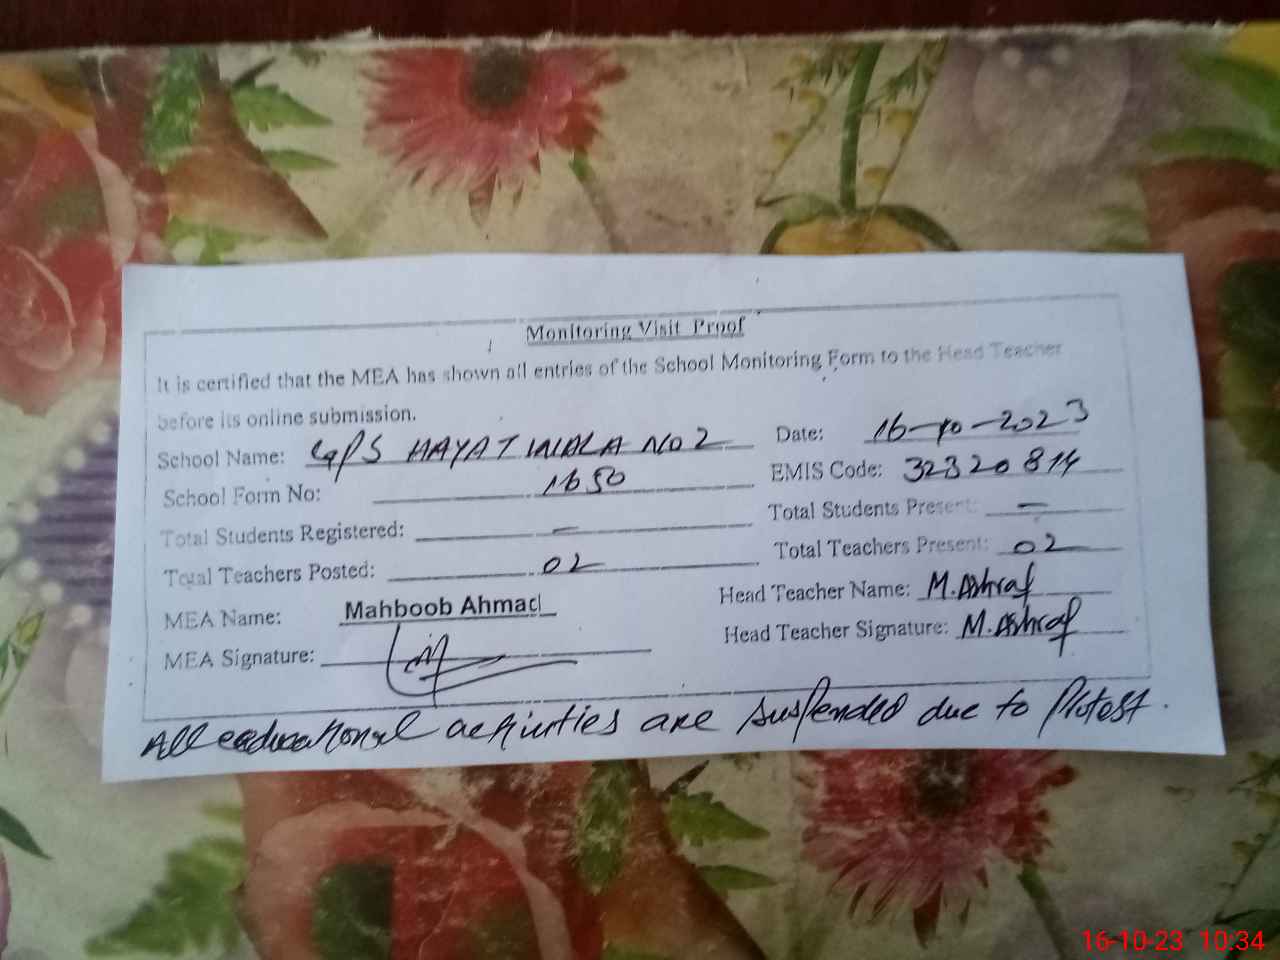 Monitoring Visit Proof
It is certified that the MEA has shown all entries of the School Monitoring Form to the Head Teacher
before its online submission.
School Name: GPS HAYAT WALA NO 2 Date: 16-10-2023
School Form No: 1650 EMIS Code: 32320814
Total Students Registered: — Total Students Present: —
Total Teachers Posted: 02 Total Teachers Present: 02
MEA Name: Mahboob Ahmad Head Teacher Name: M.Ashraf
MEA Signature: Head Teacher Signature: M.Ashraf
All eaducational activities are suspended due to Protest.
16-10-23 10:34